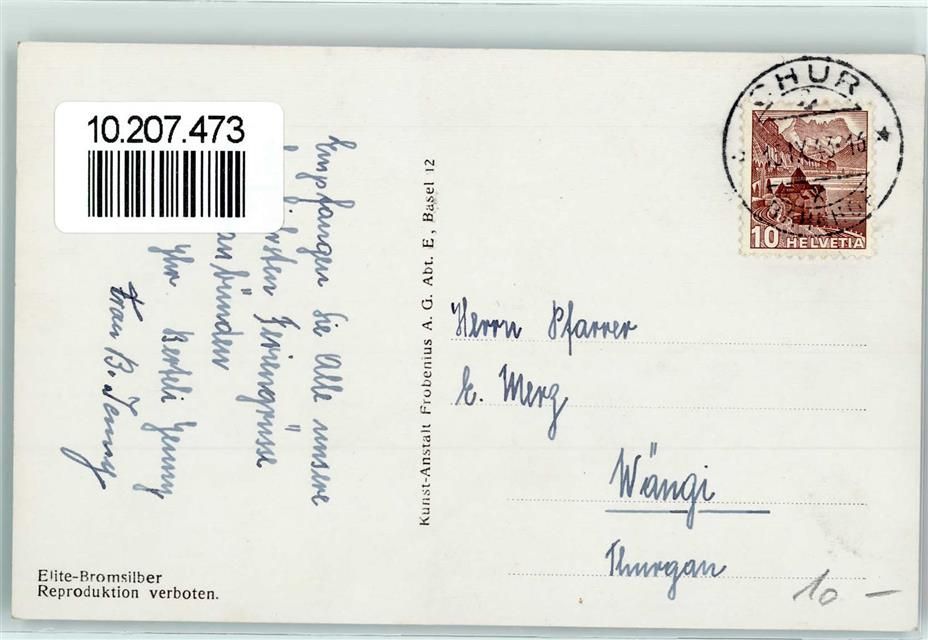 10.207.473
CHUR
10
HELVETIA
Empfangen Sie Alle unsere
Feriengrüsse
Ihr. Berteli Jenny
Frau B. Jenny
Kunst-Anstalt Frobenius A. G. Abt. E, Basel 12
Herrn Pfarrer
E. Merz
Wängi
Thurgau
Elite-Bromsilber
Reproduktion verboten.
10 –